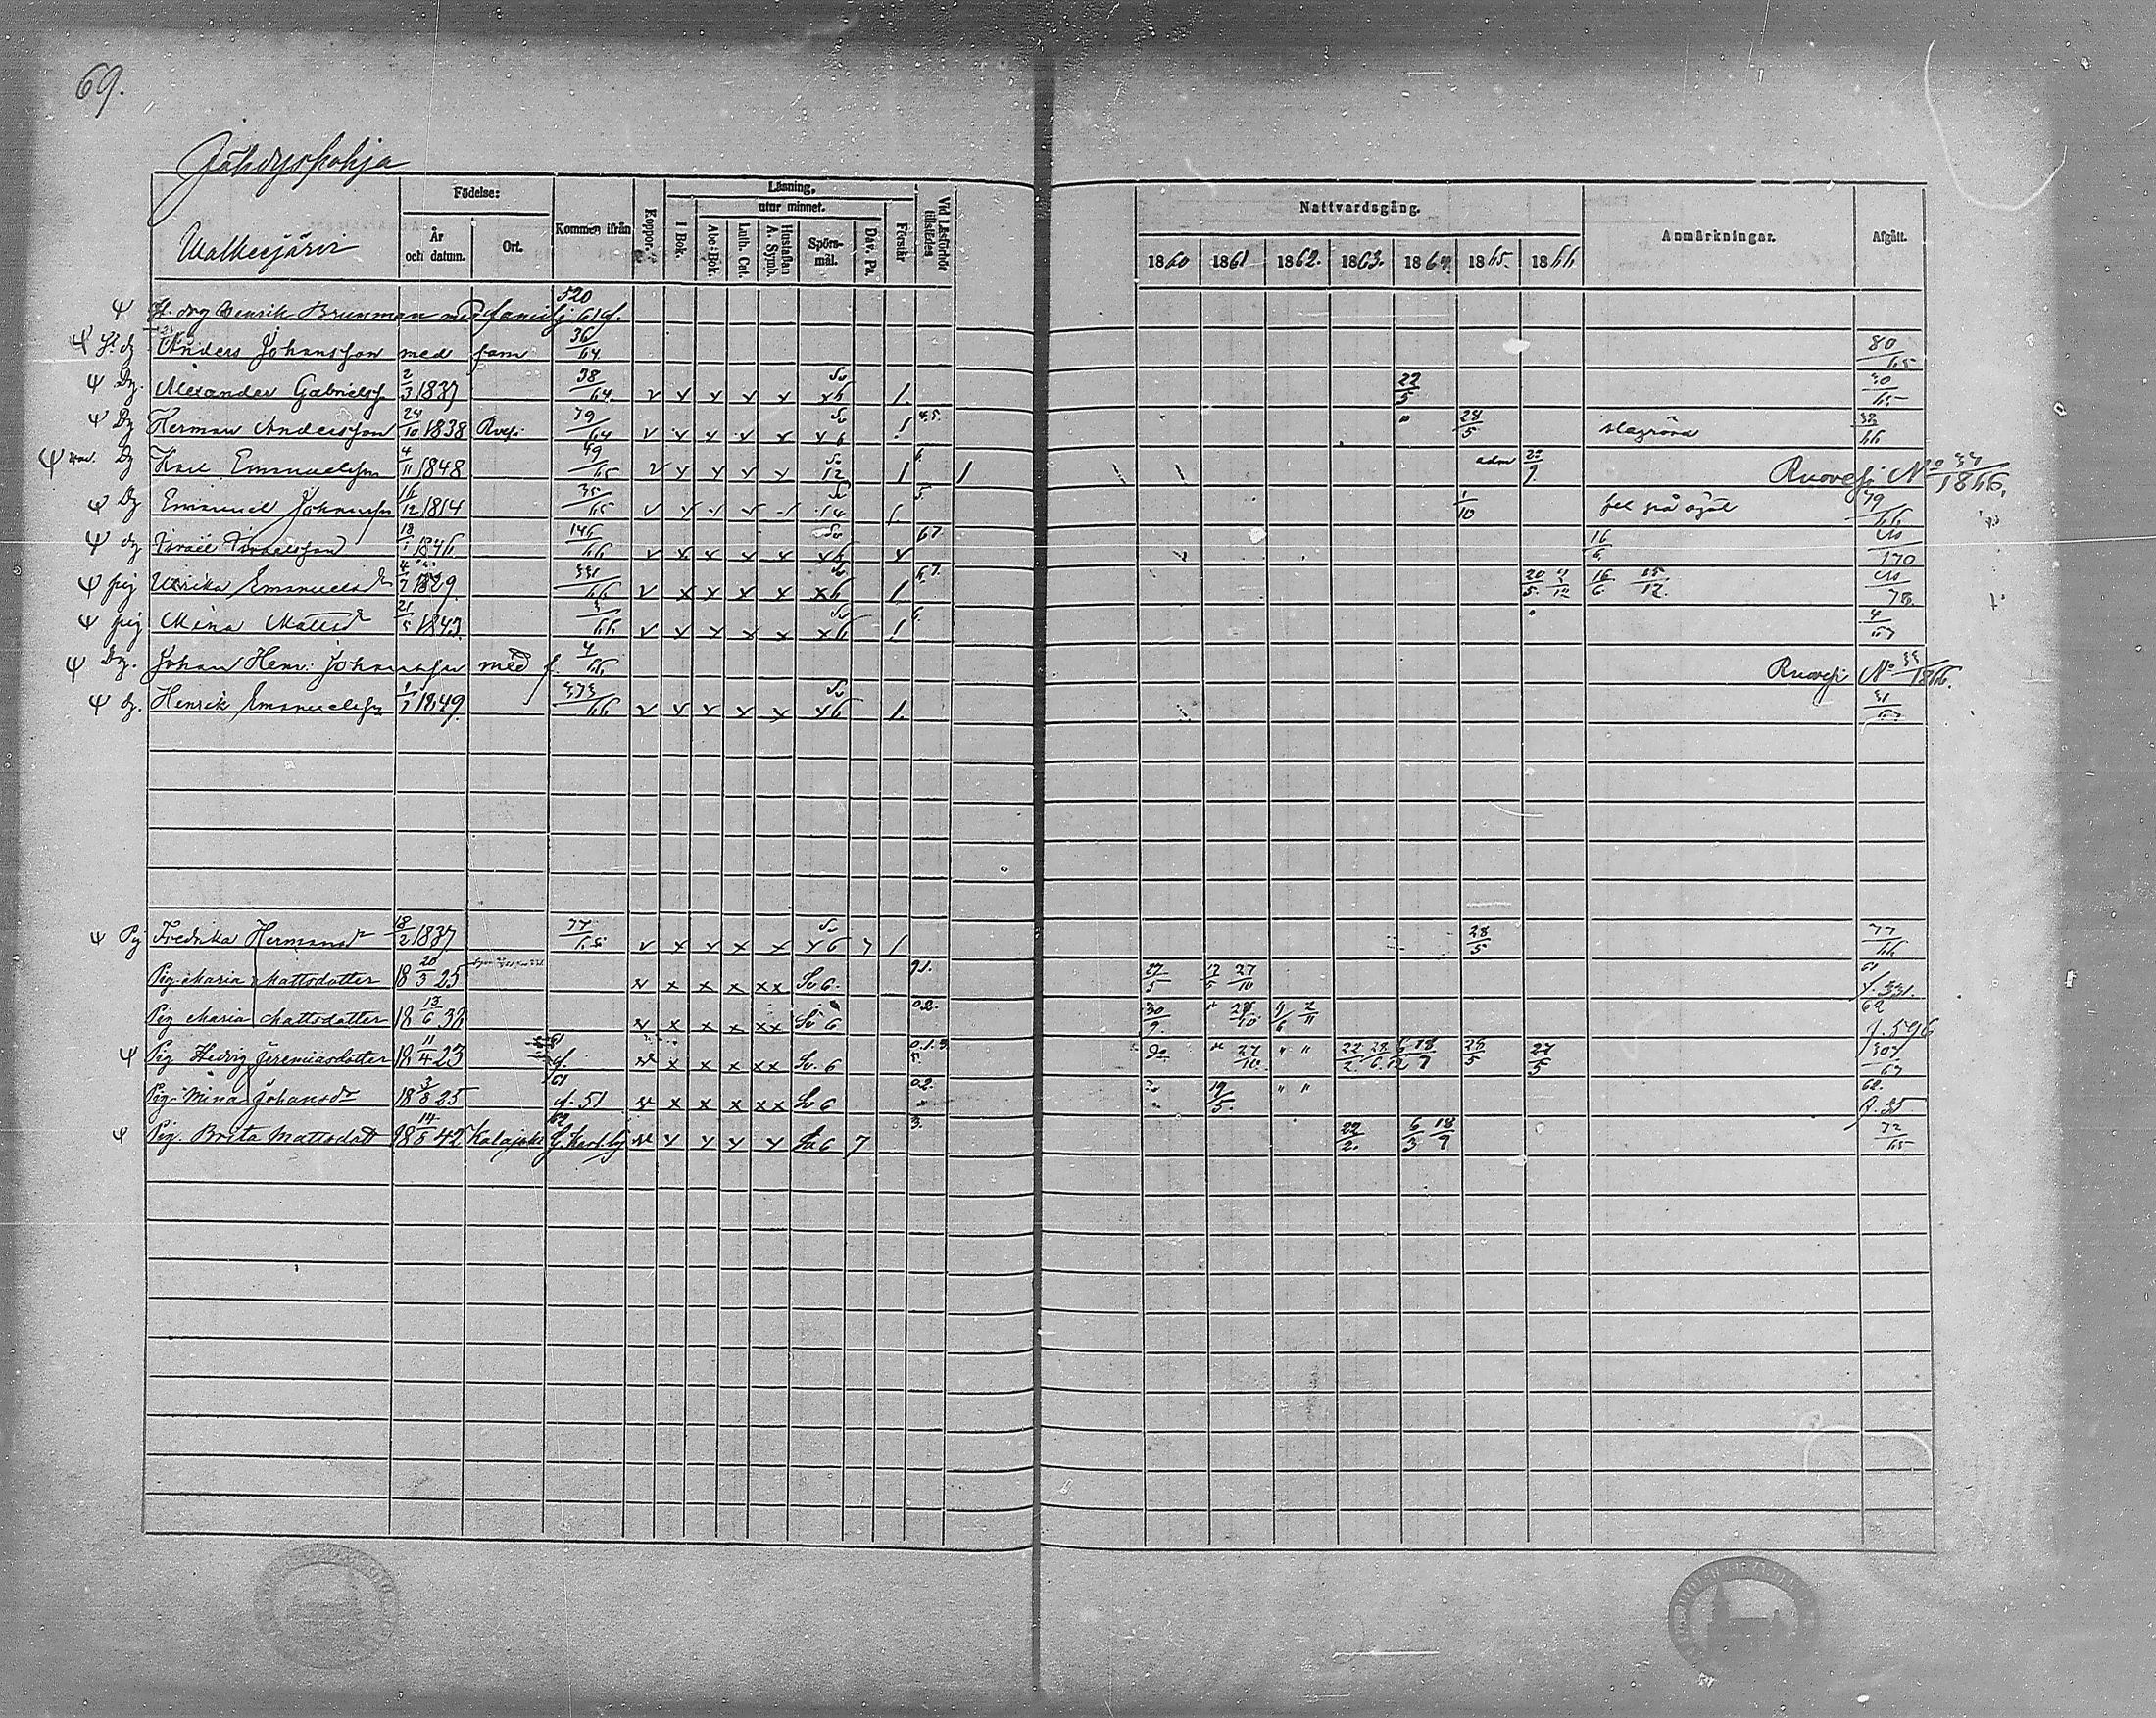 69.
Jähdyspohja
Walkeejärvi
Födelse: Läsning, Nattvardsgång.
År och datum. Ort. Kommen ifrån Koppor. I Bok. utur minnet. Abc-Bok. Luth. Cat. Hustaflan A. Symb. Spörsmål. Dav. Ps. Förstår Vid Läsförhör tillstädes 1860 1861 1862. 1863. 1864. 1865. 1866 Anmärkningar. Afgått.
Henrik Brunman med familj 520 61 f.
Anders Johansson med fam 36/64 80/65
Dg. Alexander Gabrielss 2/3 1837 38/64 v x x x x Sv x6 1. 22/5 30/65
Dg Herman Andersson 24/10 1838 Ruvesi 79/64 v x x x x Sv x6 1 4.5. " 28/5
Dg Karl Emanuelsson 4/11 1848 49/65 v x x x x Sv 12 1 6. 1 adm 22/9 Ruovesi No 34/1866.
Dg Emanuel Johansson 16/12 1814 35/65 v Sv 14 1. 5. 1/10 fel på ögat 79/66
dg Israel Israelsson 18/1 1846 146/66 v x x x x Sv x6 x 67 16/6 170
pig Ulrika Emanuelsdr 4/7 1829. 331/66 v x x x x Sv x6 1 67. 20/5 2/12 16/6 15/12. 78.
pig Mina Mattsdr 21/5 1843 3/66 v x x x x Sv x6 1 6. " 4/67
Dg. Johan Henr: Johansson med f. 4/66 Ruovesi No 33/1866.
dg. Henrik Emanuelsson 1/1 1849. 373/66 v x x x x Sv x6 1. 31/67
Pig Fredrika Hermansdr 18/2 1837 77/65 v x x x x Sv x6 7 1 28/5 77/66
Pig. Maria Mattsdotter 18 20/3 25 x x x x x Sv 6. 91. 27/5 12/5 27/10 61 f. 331.
Pig Maria Mattsdotter 18 13/6 38 x x x x x Sv 6 02. 30/9. " 28/10. 9/6 2/11 62 f. 596
Pig Hedvig Jeremiasdotter 18 11/4 23 61 f. x x x x x Sv. 6 0.1.3. 5. " 27/10. " " 22/2. 28/6. 6/12 18/9 28/5 27/5 307/67
Pig. Mina Johansdr 18 3/8 25 61 f. 51 x x x x x Sv 6 02. 19/5. " " 62. f. 35
Pig. Brita Mattsdott 18 14/5 42 Kalajoki 62 x x x x Sv 6 7 3. 22/2. 6/3 18/9 72/65